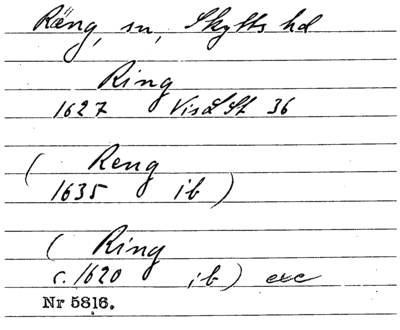 Räng, sn, Skytts hd
Ring
1627 VisLSt 36
( Reng
1635 ib )
( Ring
c. 1620 ib ) exc
Nr 5816.